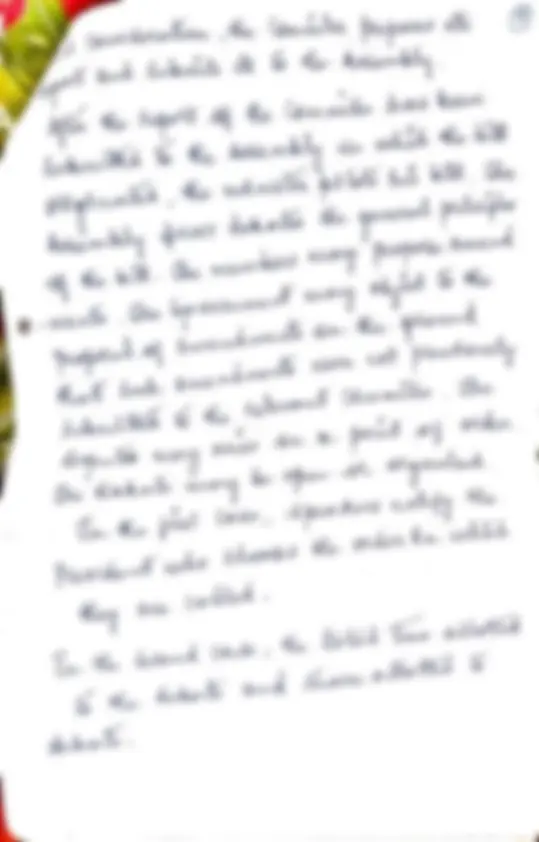 consideration, the Committee prepares its
report and submits it to the Assembly.
After the report of the Committee has been
submitted to the Assembly in which the bill
originated, the
Assembly first debates the general principles
of the bill. The members may propose amend
-ments. The Government may object to the
proposal of amendments on the ground
that such amendments were not previously
submitted to the relevant Committee. The
may raise on a point of order.
The debate may be open or organised.
In the first case, speakers notify the
President who chooses the order in which
they are called.
In the second case, the total time allotted
to the debate and allotted to
debate.